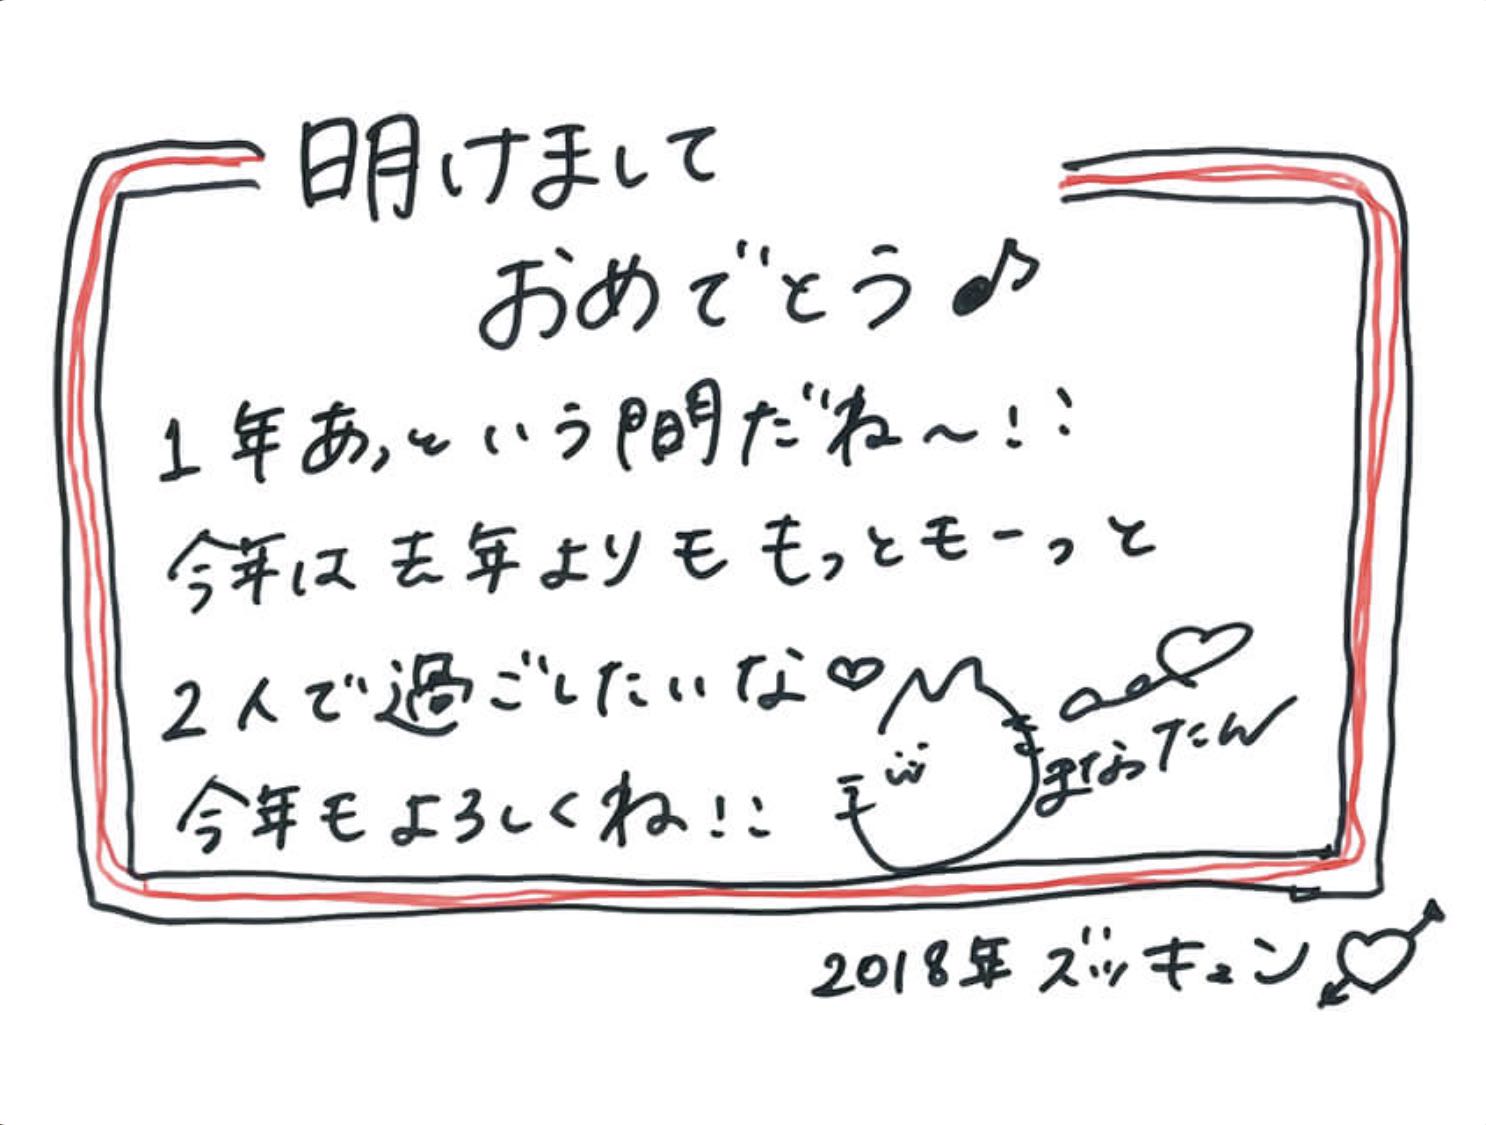 明けまして
おめでとう♪
1年あっという間だね〜!!
今年は去年よりももっとモーっと
2人で過ごしたいな♡
まなったん
今年もよろしくね!!
2018年ズッキュン